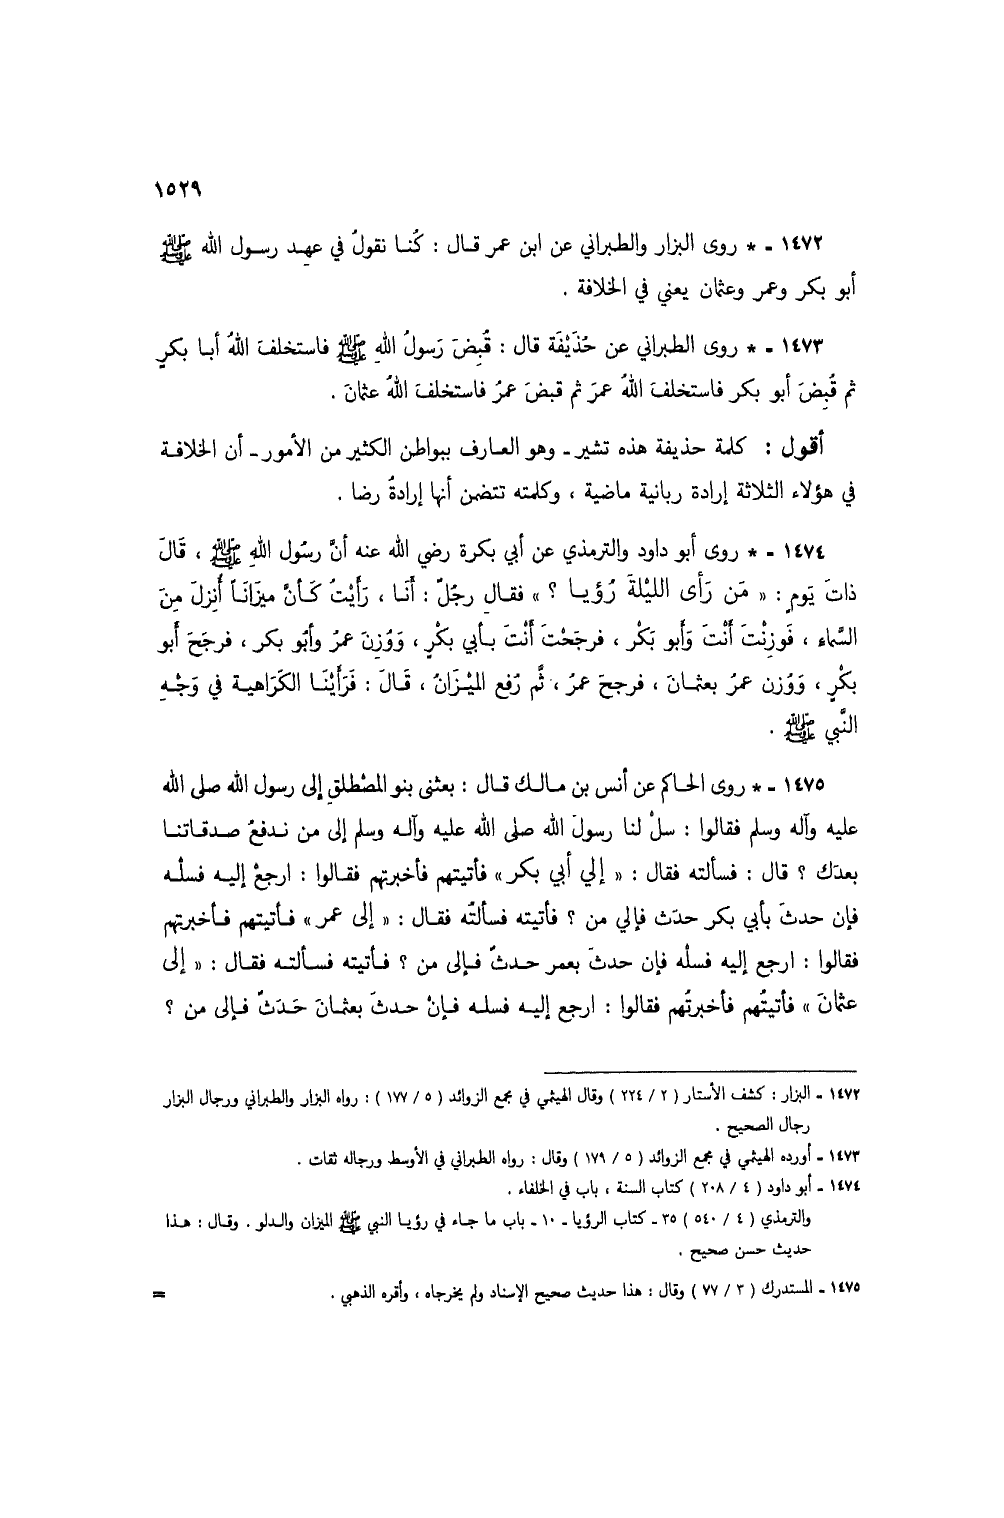 ١٥٢٩
١٤٧٢ - * روى البزار والطبراني عن ابن عمر قال : كُنا نقولُ في عهد رسول الله ﷺ
أبو بكر وعمر وعثمان يعني في الخلافة .
١٤٧٣ - * روى الطبراني عن حُذَيْفَة قال : قُبِضَ رَسولُ اللهِ ﷺ فاستخلفَ اللهُ أبا بكرٍ
ثم قُبِضَ أبو بكر فاستخلفَ اللهُ عمرَ ثم قبضَ عمرُ فاستخلفَ اللهُ عثمانَ .
أقول : كلمة حذيفة هذه تشير - وهو العارف ببواطن الكثير من الأمور - أن الخلافة
في هؤلاء الثلاثة إرادة ربانية ماضية ، وكلمته تتضمن أنها إرادةُ رضا .
١٤٧٤ - * روى أبو داود والترمذي عن أبي بكرة رضي الله عنه أنَّ رسُول اللهِ ﷺ ، قَالَ
ذاتَ يَومٍ : « مَن رَأى الليْلَةَ رُؤيا ؟ » فقال رجُلٌ : أَنَا ، رَأَيْتُ كَأنَّ ميزَانَاً أُنزِلَ مِنَ
السَّماء ، فَوزِنْتَ أَنْتَ وَأبو بَكْر ، فرجَحْتَ أَنْتَ بأبي بكْرٍ ، وَوُزِنَ عمرُ وأبُو بكر ، فرجَحَ أَبو
بكْرٍ ، وَوُزن عمرُ بعثمانَ ، فرجحَ عمرُ ، ثُم رُفع الميْزَانُ ، قَالَ : فَرَأَيْنَا الكَرَاهية في وَجْهِ
النَّبي ﷺ .
١٤٧٥ - * روى الحاكم عن أنس بن مالك قال : بعثني بنو المصْطلقِ إلى رسول الله صلى الله
عليه وآله وسلم فقالوا : سلْ لنا رسولَ الله صلى الله عليه وآله وسلم إلى من ندفعُ صدقاتنا
بعدَك ؟ قال : فسألته فقال : « إلي أبي بكر » فأتيتهم فأخبرتهم فقالوا : ارجعْ إليه فسلْه
فإن حدثَ بأبي بكر حدَث فإلي من ؟ فأتيته فسألتُه فقال : « إلى عمر » فأتيتهم فأخبرتهم
فقالوا : ارجع إليه فسلْه فإن حدثَ بعمر حدثٌ فإلى من ؟ فأتيته فسألته فقال : « إلى
عثمانَ » فأتيتُهم فأخبرتُهم فقالوا : ارجع إليه فسله فإنْ حدثَ بعثمانَ حَدَثٌ فإلى من ؟
١٤٧٢ - البزار : كشف الأستار ( ٢ / ٢٢٤ ) وقال الهيثمي في مجمع الزوائد ( ٥ / ١٧٧ ) : رواه البزار والطبراني ورجال البزار
رجال الصحيح .
١٤٧٣ - أورده الهيثمي في مجمع الزوائد ( ٥ / ١٧٩ ) وقال : رواه الطبراني في الأوسط ورجاله ثقات .
١٤٧٤ - أبو داود ( ٤ / ٢٠٨ ) كتاب السنة ، باب في الخلفاء .
والترمذي ( ٤ / ٥٤٠ ) ٣٥ - كتاب الرؤيا - ١٠ - باب ما جاء في رؤيا النبي ﷺ الميزان والدلو . وقال : هذا
حديث حسن صحيح .
١٤٧٥ - المستدرك ( ٣ / ٧٧ ) وقال : هذا حديث صحيح الإسناد ولم يخرجاه ، وأقره الذهبي . =